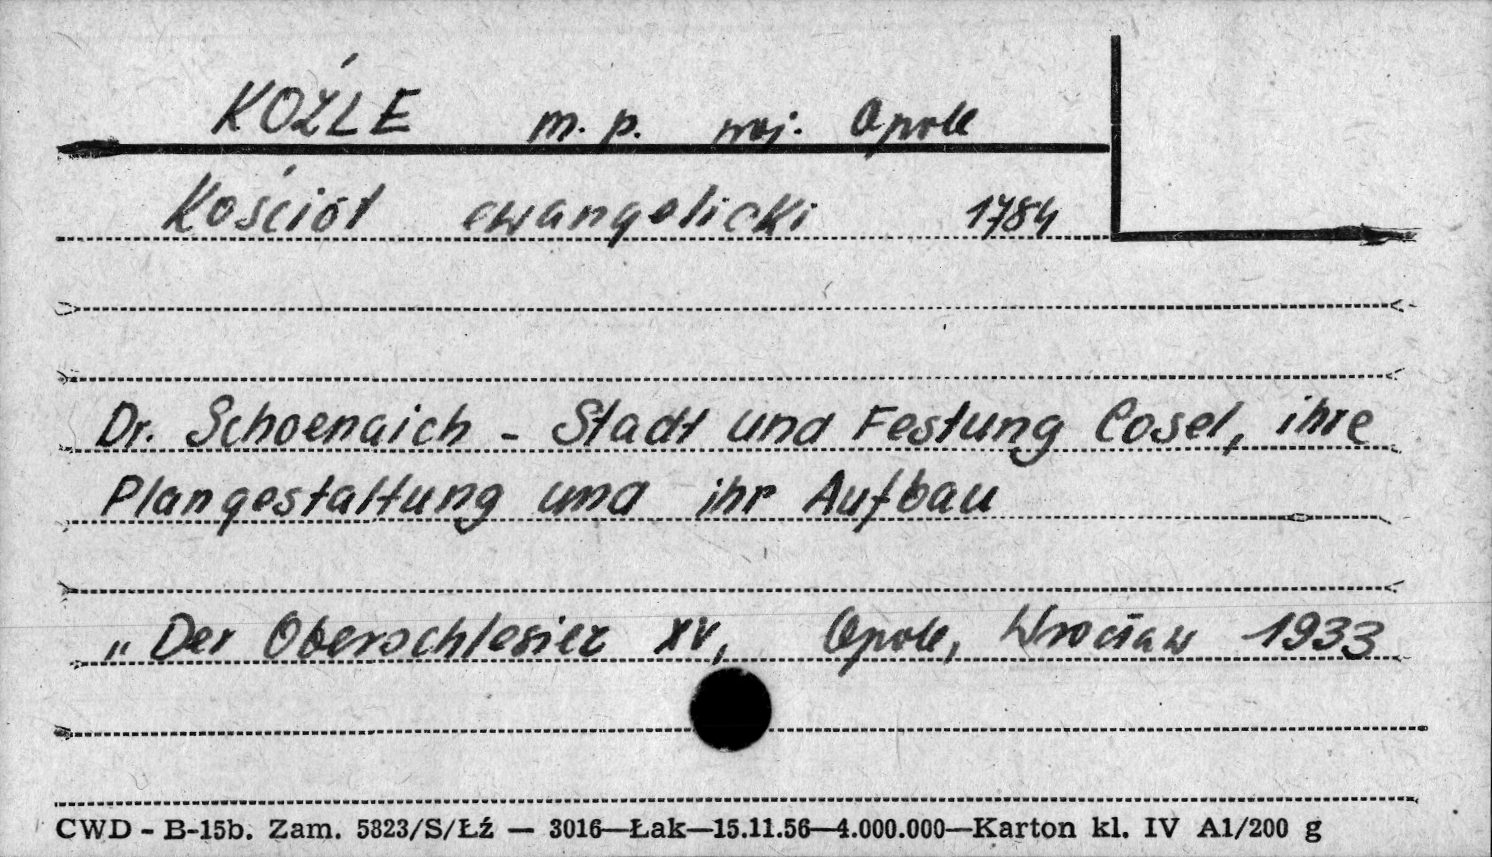 KOŹLE m. p. woj. Opole
Kościół ewangelicki 1784
Dr. Schoenaich - Stadt und Festung Cosel, ihre
Plangestaltung und ihr Aufbau
„Der Oberschlesier XV, Opole, Wrocław 1933
CWD - B-15b. Zam. 5823/S/Łź — 3016—Łak—15.11.56—4.000.000—Karton kl. IV A1/200 g